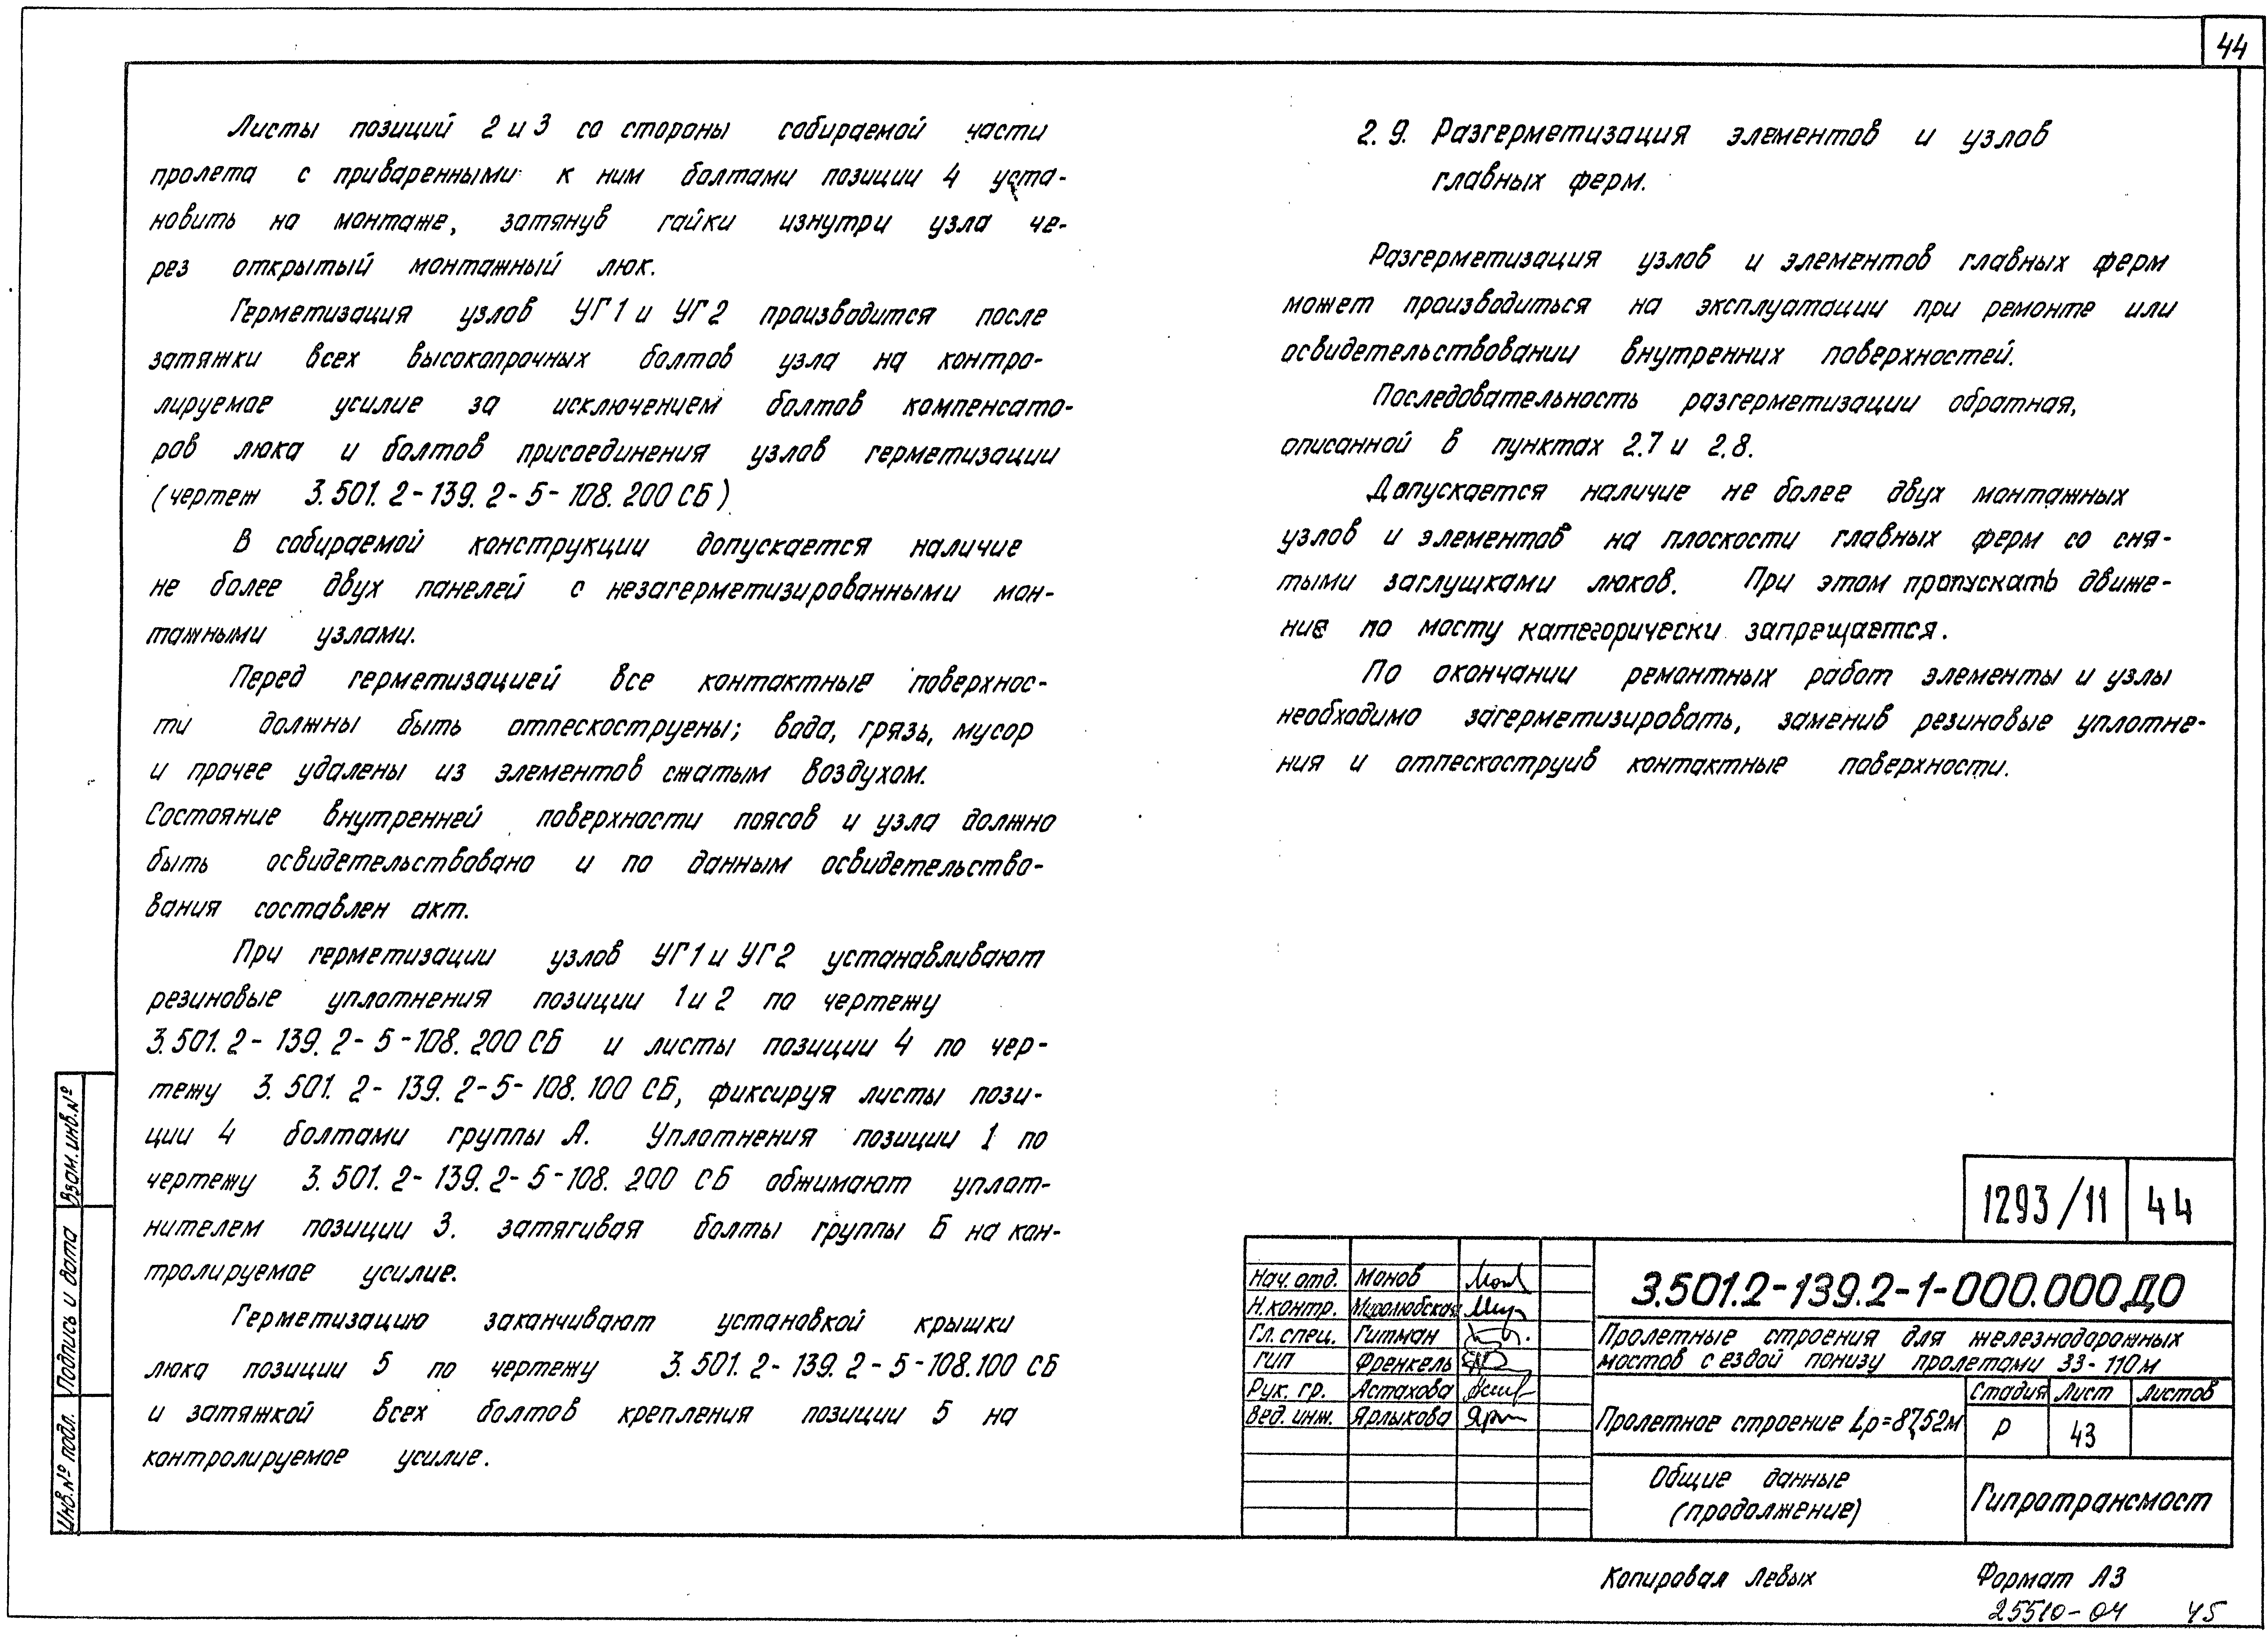 44
Листы позиций 2 и 3 со стороны собираемой части
пролета с приваренными к ним болтами позиции 4 уста-
новить на монтаже, затянув гайки изнутри узла че-
рез открытый монтажный люк.
Герметизация узлов УГ1 и УГ2 производится после
затяжки всех высокопрочных болтов узла на контро-
лируемое усилие за исключением болтов компенсато-
ров люка и болтов присоединения узлов герметизации
(чертеж 3.501.2-139.2-5-108.200СБ)
В собираемой конструкции допускается наличие
не более двух панелей с незагерметизированными мон-
тажными узлами.
Перед герметизацией все контактные поверхнос-
ти должны быть отпескоструены; вода, грязь, мусор
и прочее удалены из элементов сжатым воздухом.
Состояние внутренней поверхности поясов и узла должно
быть освидетельствовано и по данным освидетельство-
вания составлен акт.
При герметизации узлов УГ1 и УГ2 устанавливают
резиновые уплотнения позиции 1 и 2 по чертежу
3.501.2-139.2-5-108.200СБ и листы позиции 4 по чер-
тежу 3.501.2-139.2-5-108.100СБ, фиксируя листы пози-
ции 4 болтами группы А. Уплотнения позиции 1 по
чертежу 3.501.2-139.2-5-108.200 СБ обжимают уплот-
нителем позиции 3. затягивая болты группы Б на кон-
тролируемое усилие.
Герметизацию заканчивают установкой крышки
люка позиции 5 по чертежу 3.501.2-139.2-5-108.100 СБ
и затяжкой всех болтов крепления позиции 5 на
контролируемое усилие.
2.9. Разгерметизация элементов и узлов
главных ферм.
Разгерметизация узлов и элементов главных ферм
может производиться на эксплуатации при ремонте или
освидетельствовании внутренних поверхностей.
Последовательность разгерметизации обратная,
описанной в пунктах 2.7 и 2.8.
Допускается наличие не более двух монтажных
узлов и элементов на плоскости главных ферм со сня-
тыми заглушками люков. При этом пропускать движе-
ние по мосту категорически запрещается.
По окончании ремонтных работ элементы и узлы
необходимо загерметизировать, заменив резиновые уплотне-
ния и отпескоструив контактные поверхности.
Взам. инв. №
Подпись и дата
Инв. № подл.
1293/11 44
Нач. отд. Монов
Н. контр. Миролюбская
Гл. спец. Гитман
ГИП Френкель
Рук. гр. Астахова
Вед. инж. Ярлыкова
3.501.2-139.2-1-000.000ДО
Пролетные строения для железнодорожных
мостов с ездой понизу пролетами 33-110м
Пролетное строение Lp=87,52м
Стадия Лист Листов
Р 43
Общие данные
(продолжение)
Гипротрансмост
Копировал Левых Формат А3
25510-04 45